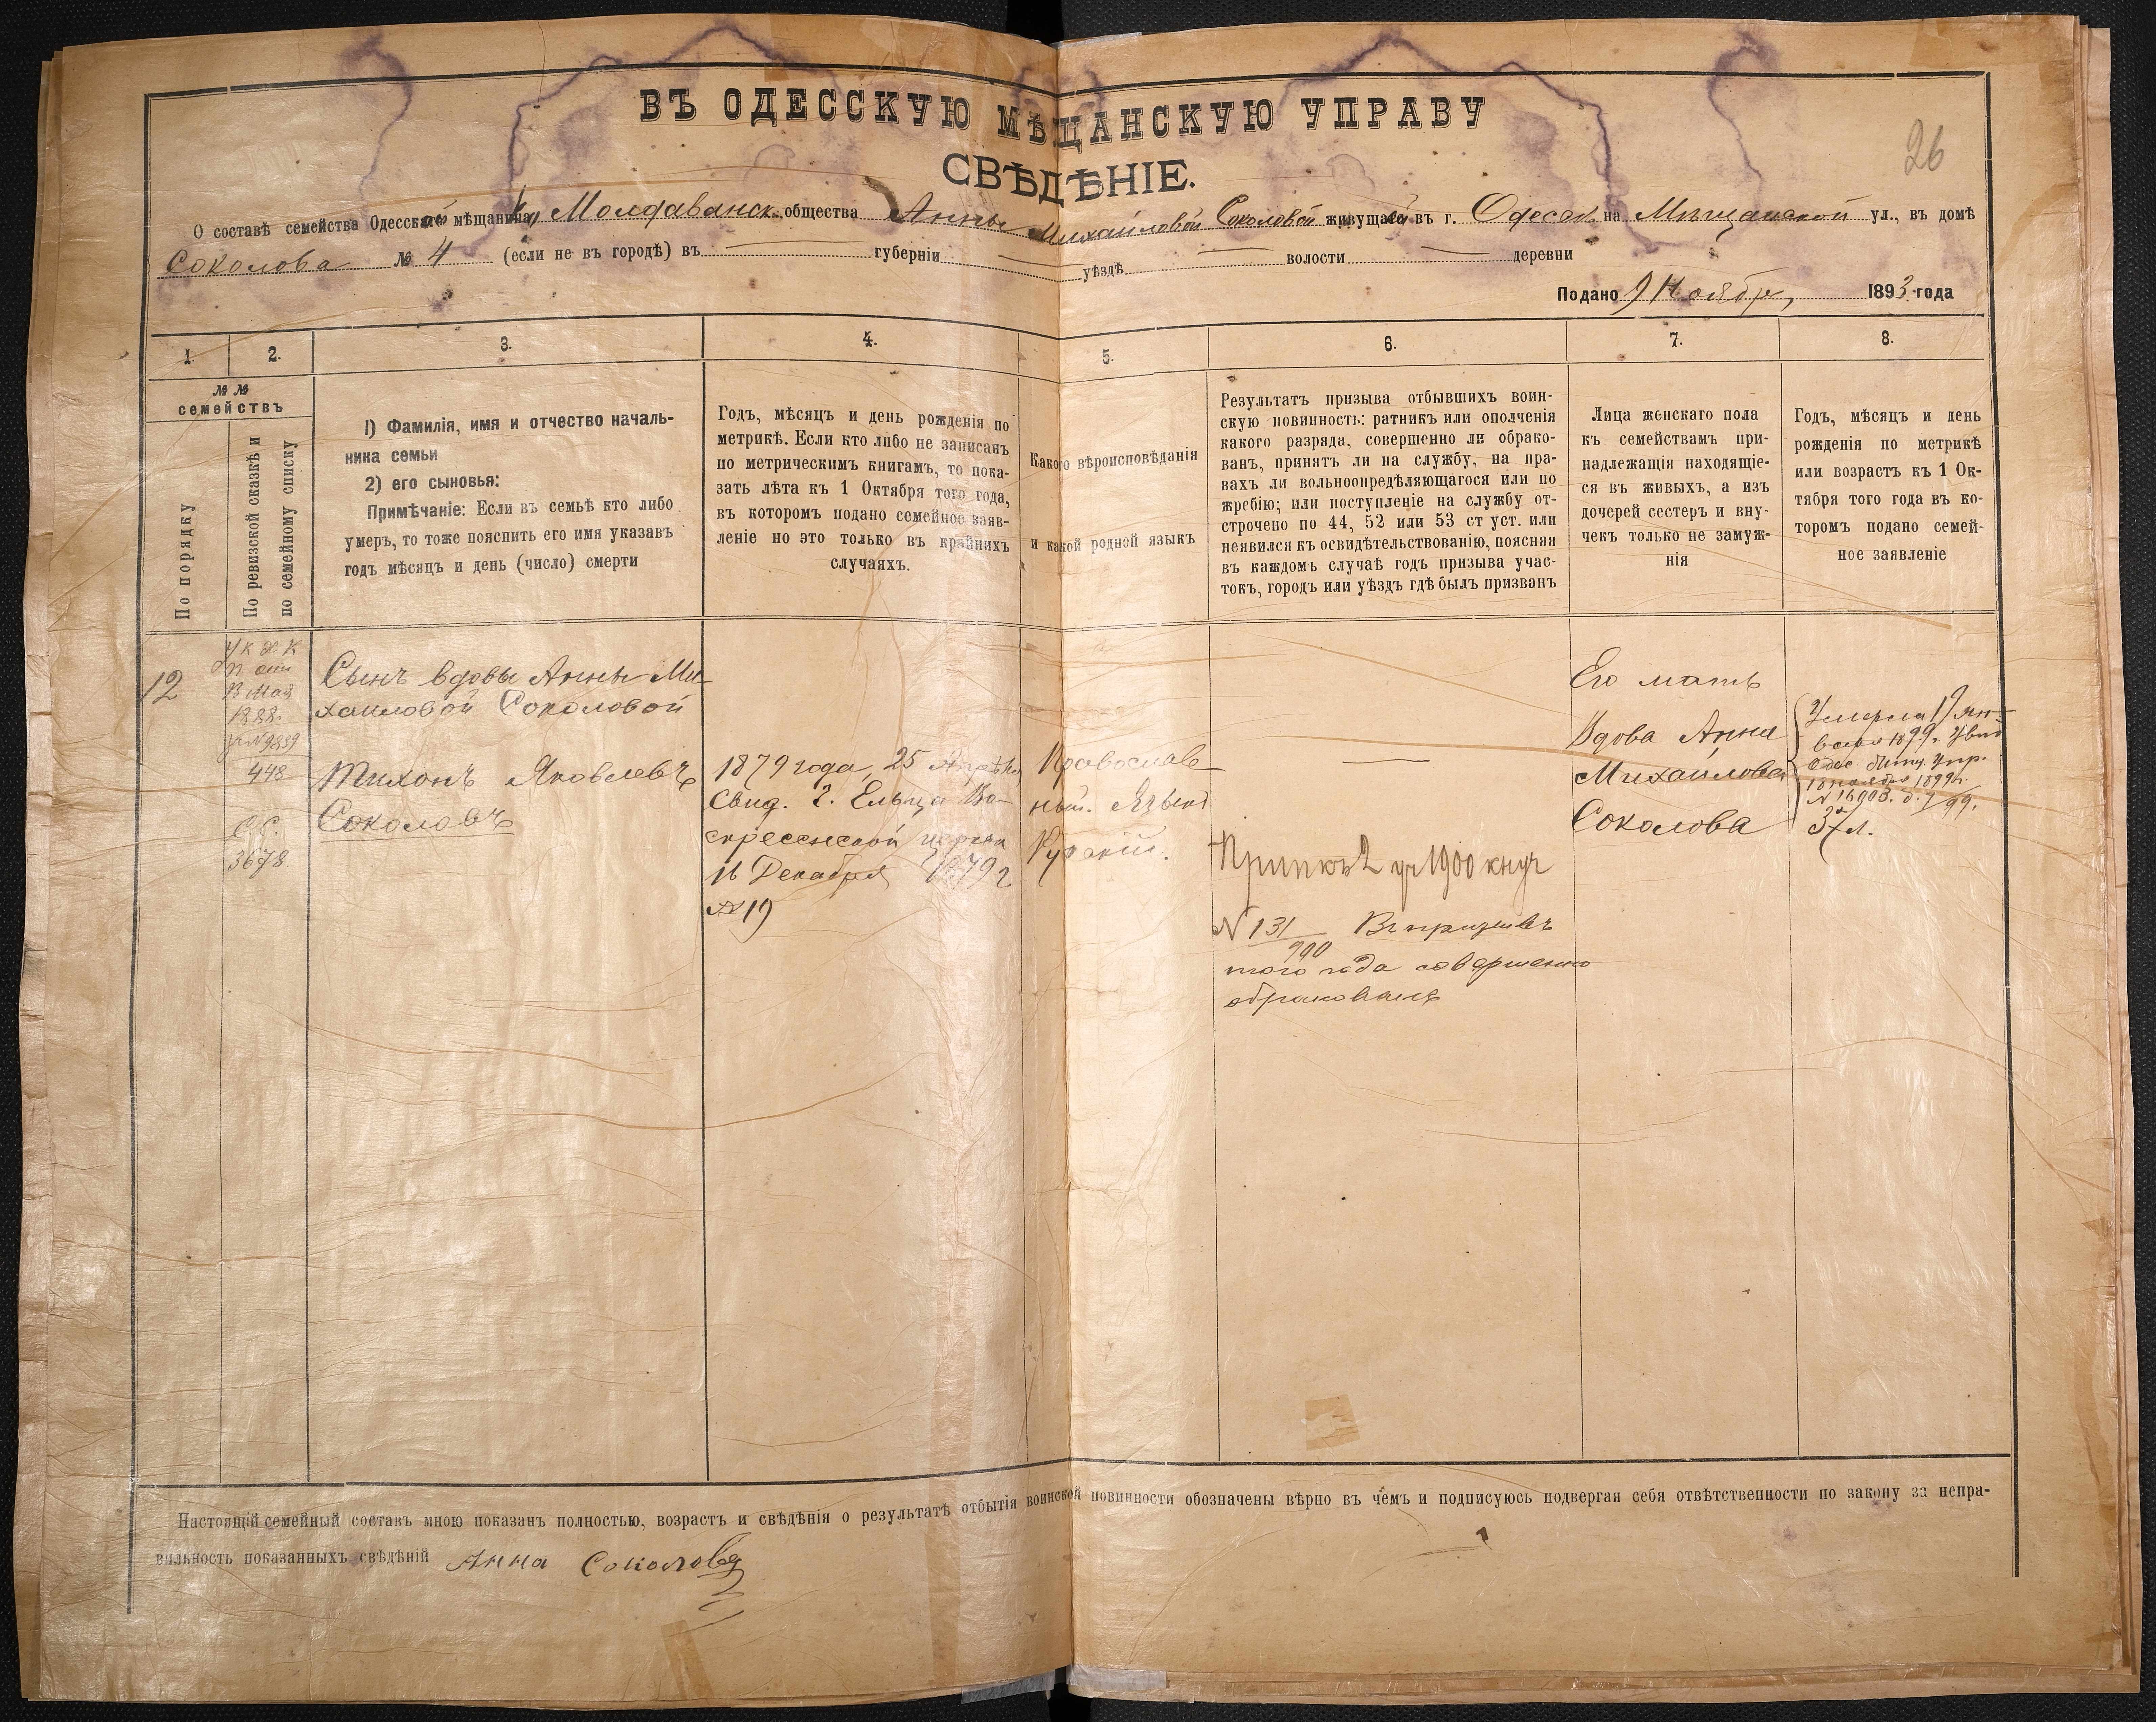 ВЪ ОДЕССКУЮ МѢЩАНСКУЮ УПРАВУ
26
СВѢДѢНІЕ.
О составѣ семейства Одесской мѣщанки Молдаванск. общества Анны Михайловой Соколовой живущей въ г. Одессѣ на Мѣщанской ул., въ домѣ
Соколова № 4 (если не въ городѣ) въ губерніи уѣздѣ волости деревни
Подано 9 Ноября 1893 года
1. 2. 3. 4. 5. 6. 7. 8.
№ №
семействъ
По порядку
По ревизской сказкѣ и
по семейному списку
1) Фамилія, имя и отчество началь-
ника семьи
2) его сыновья:
Примѣчаніе: Если въ семьѣ кто либо
умеръ, то тоже пояснить его имя указавъ
годъ мѣсяцъ и день (число) смерти
Годъ, мѣсяцъ и день рожденія по
метрикѣ. Если кто либо не записанъ
по метрическимъ книгамъ, то пока-
зать лѣта къ 1 Октября того года,
въ которомъ подано семейное заяв-
леніе но это только въ крайнихъ
случаяхъ.
Какого вѣроисповѣданія
и какой родной языкъ
Результатъ призыва отбывшихъ воин-
скую повинность: ратникъ или ополченія
какого разряда, совершенно ли обрако-
ванъ, принятъ ли на службу, на пра-
вахъ ли вольноопредѣляющагося или по
жребію; или поступленіе на службу от-
строчено по 44, 52 или 53 ст уст. или
неявился къ освидѣтельствованію, поясняя
въ каждомъ случаѣ годъ призыва учас-
токъ, городъ или уѣздъ гдѣ былъ призванъ
Лица женскаго пола
къ семействамъ при-
надлежащія находящіе-
ся въ живыхъ, а изъ
дочерей сестеръ и вну-
чекъ только не замуж-
нія
Годъ, мѣсяцъ и день
рожденія по метрикѣ
или возрастъ къ 1 Ок-
тября того года въ ко-
торомъ подано семей-
ное заявленіе
12
Ук Х. К
В Мая
1888.
№ 9889
448
С.С.
3678
Сынъ вдовы Анны Ми-
хаиловой Соколовой
Тихонъ Яковлевъ
Соколовъ
1879 года, 25 Апрѣля
Свид. г. Ельца Во-
скресенской церкви
16 Декабря 1879 г
№ 19
Православ-
ный. Языкъ
Русскій.
2 уч 1900
N 131
900 Въ призывъ
того года совершенно
обракованъ
Его мать
Вдова Анна
Михайлова
Соколова
Умерла 17 ян-
варя 1899 г.
Одес. Мѣщ. Упр.
18 1899 г.
N 16003.
37 л.
Настоящій семейный составъ мною показанъ полностью, возрастъ и свѣдѣнія о результатѣ отбытія воинской повинности обозначены вѣрно въ чемъ и подписуюсь подвергая себя отвѣтственности по закону за непра-
вильность показанныхъ свѣдѣній Анна Соколова